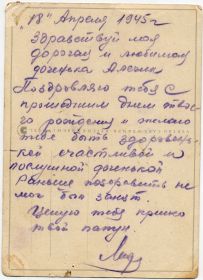 "18" Апреля 1945 г
Здравствуй моя
дорогая и любимая
доченька
Поздравляю тебя с
прошедшим днем твое-
го рождения и желаю
тебе быть здоровень-
кой счастливой и
послушной доченькой
Раньше поздравить не
мог был занят.
Целую тебя крепко
твой папун.